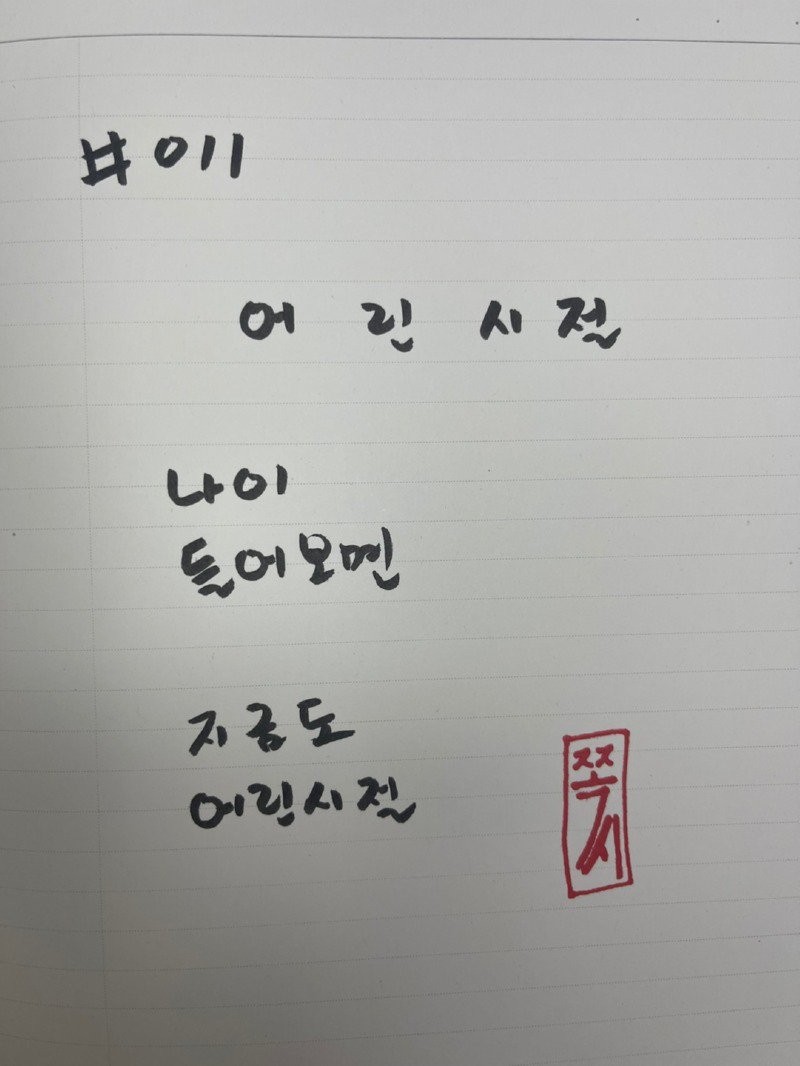 #011
어린시절
나이
들어보면
지금도
어린시절
쪽시